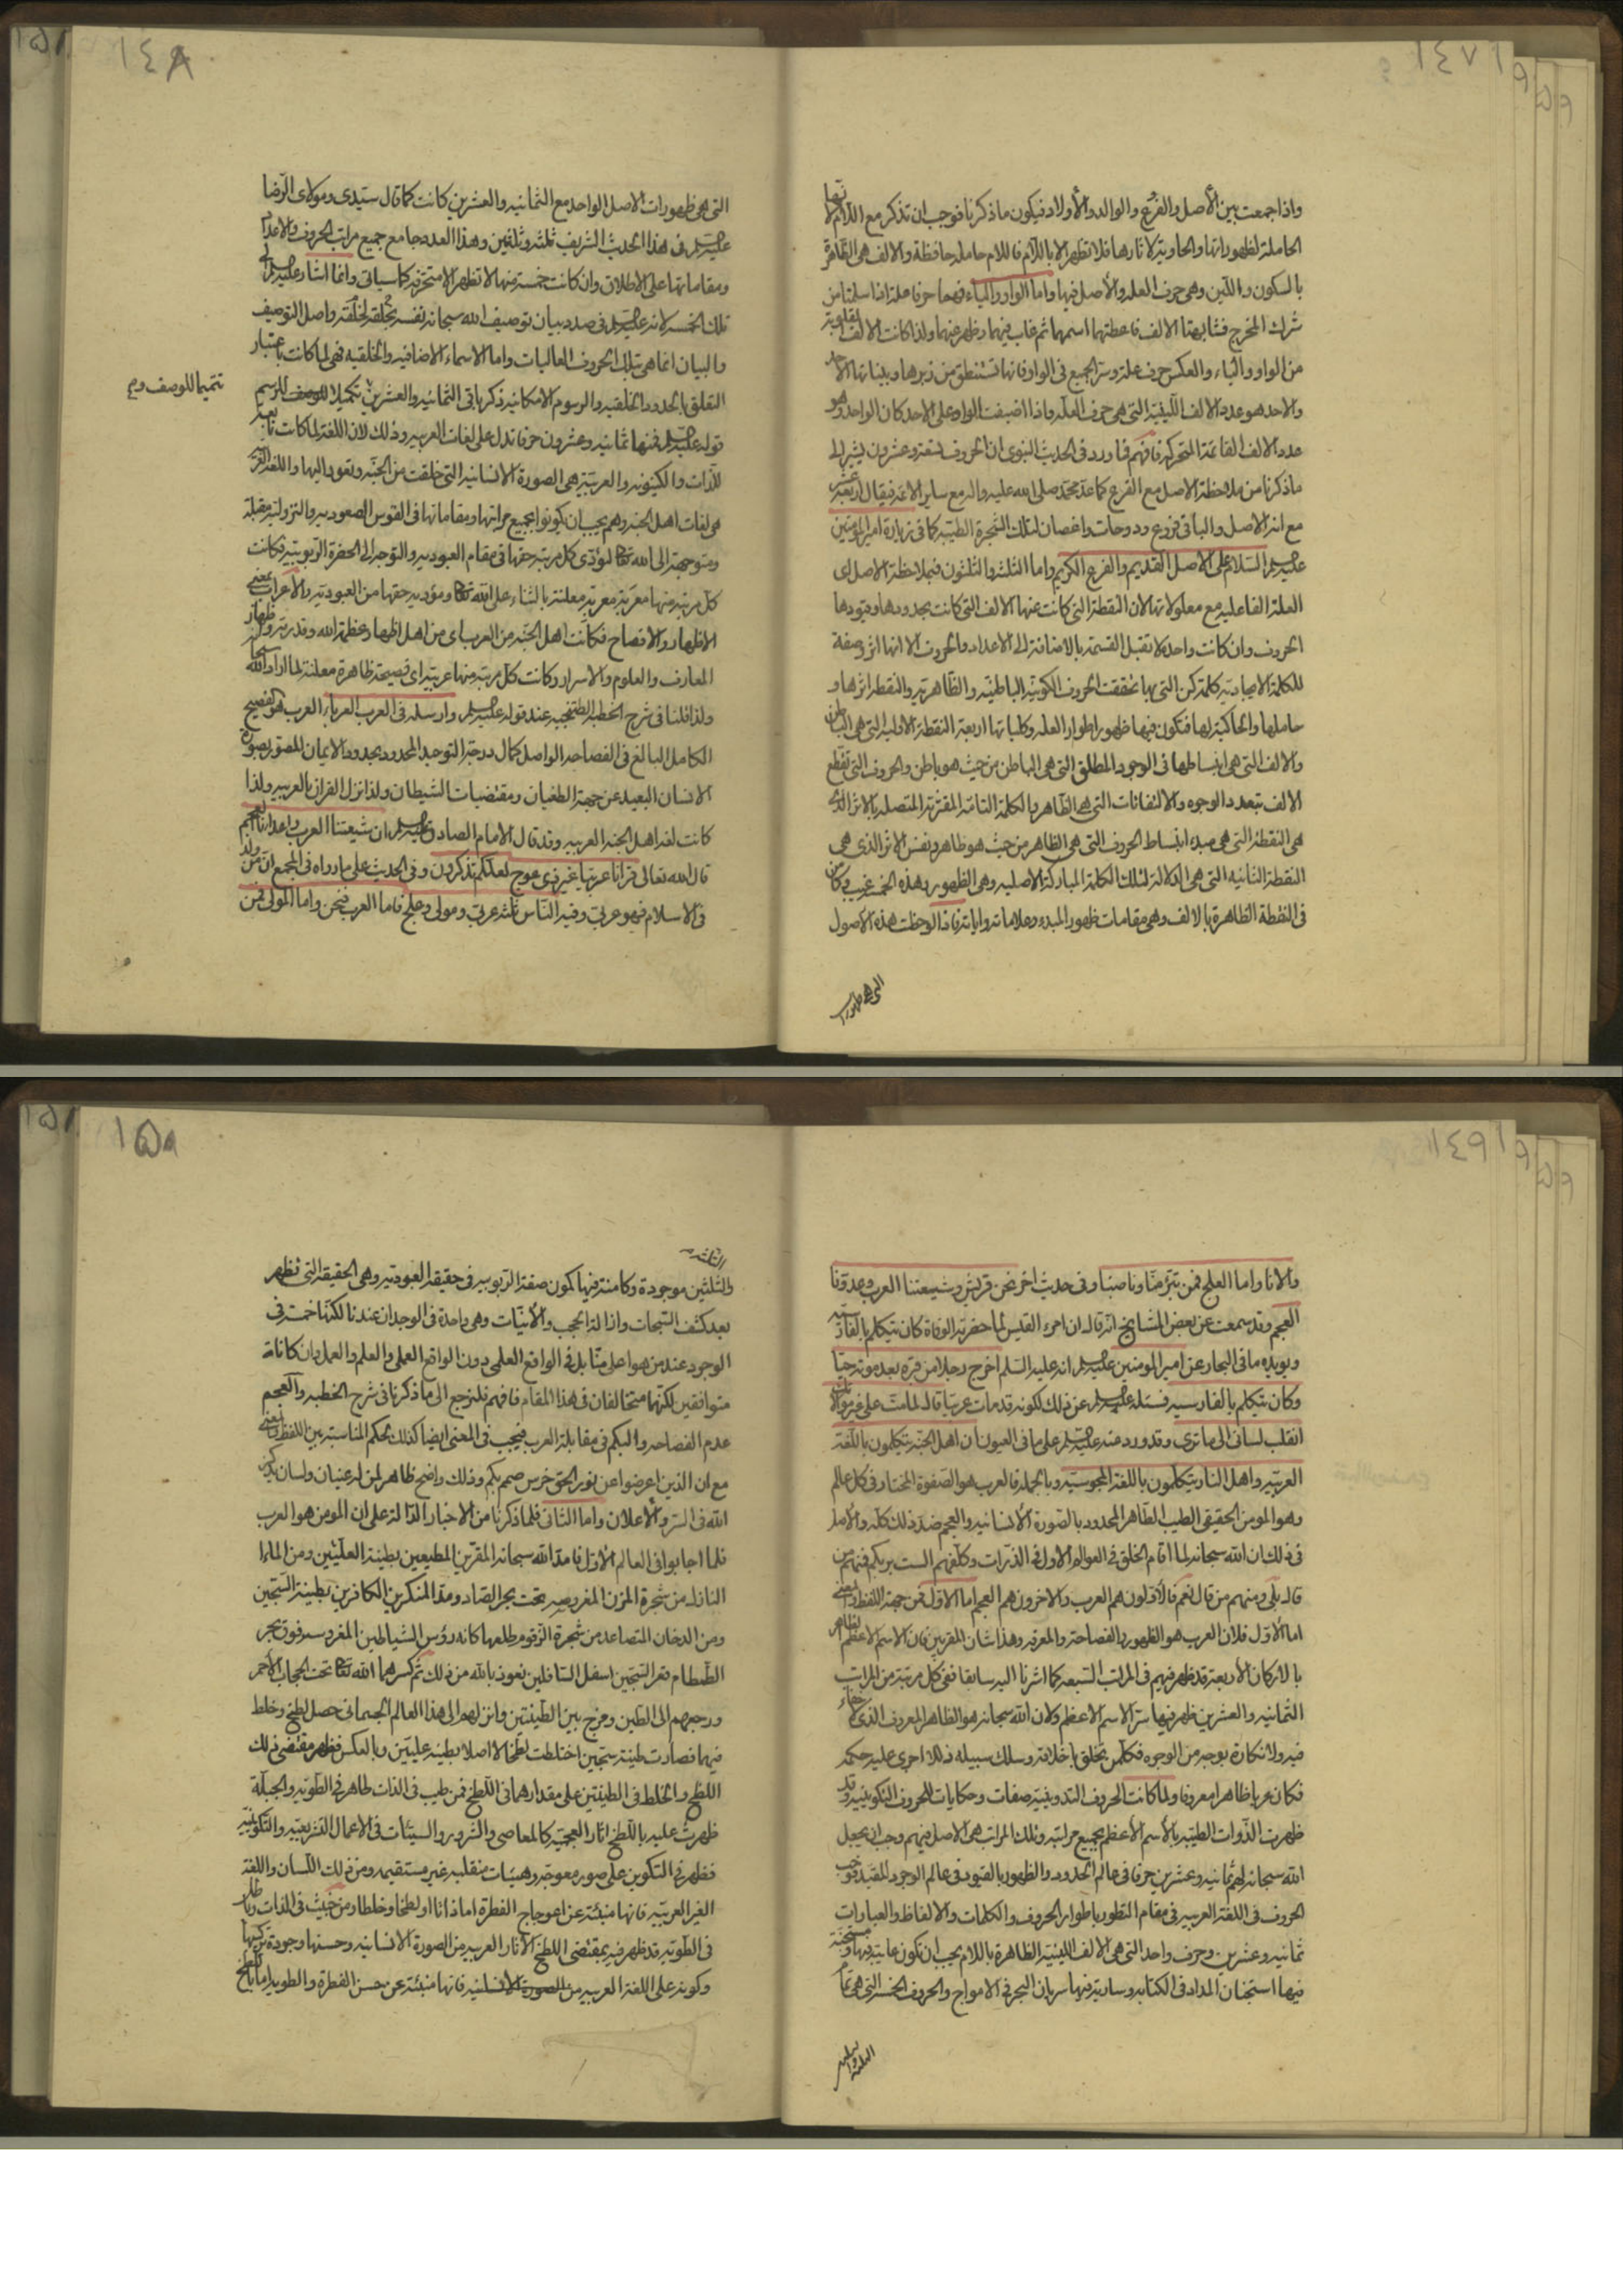 ١٤٧
واذا جمعت بين الأصل والفرع والوالد والأولاد فيكون ما ذكرنا فوجب ان تذكر مع اللام لانها
الحاملة لظهوراتها والحاوية لاثارها فلا تظهر الا باللام فاللام حاملة حافظة والالف هى الظاهرة
بالسكون واللين وهى حرف العلة والأصل فيها واما الواو والياء فهما حرفا علة اذا سلمتا من
شرك المخرج فشابهتا الالف فاعطتهما اسمهما ثم غاب فيهما وظهر عنهما ولذا كانت الالف المقلوبة
من الواو والياء والعكس حرف علة وسر الجميع فى الواو فانها تستنطق من زبرها وبيناتها الاحد
والاحد هو عدد الالف اللينية التى هى حرف العلة واذا اضيفت الواو على الاحد كان الواحد وهو
عدد الالف القائمة المتحركة فافهم فما ورد فى الحديث النبوى ان الحروف تسعة وعشرون يشير الى
ما ذكرنا من ملاحظة الاصل مع الفرع كما عد محمد صلى الله عليه واله مع ساير الائمة فيقال اربعة عشر
مع انه الاصل والباقى فروع ودوحات واغصان لتلك الشجرة الطيبة كما فى زيارة امير المؤمنين
عليه السلم السلام على الاصل القديم والفرع الكريم واما الثلثة والثلثون فبملاحظة الاصل اى
العلة الفاعلية مع معلولاتها لان النقطة التى كانت عنها الالف التى كانت بحدودها وقيودها
الحروف وان كانت واحدة لا تقبل القسمة بالاضافة الى الاعداد والحروف الا انها اثر وصفة
للكلمة الايجادية كلمة كن التى بها تحققت الحروف الكونية الباطنية والظاهرية والنقطة اثرها و
حاملها والحاكية لها فتكون فيها ظهور اطوار العلة وكلياتها اربعة النقطة الاولية التى هى الباطن
والالف التى هى انبساطها فى الوجود المطلق التى هى الباطن من حيث هو باطن والحروف التى تقطع
الالف بتعدد الوجوه والالتفاتات التى هى الظاهر والكلمة التامة المقترنة المتصلة بالاثر الذى
هى النقطة التى هى مبدء انبساط الحروف التى هى الظاهر من حيث هو ظاهر ونفس الاثر الذى هى
النقطة الثانية التى هى الدلالة لتلك الكلمة المباركة الاصلية وهى الظهور وهذه الخمسة غيب وكامن
فى النقطة الظاهرة بالالف وهى مقامات ظهور المبدء وعلاماته واياته فاذا لوحظت هذه الاصول
التى هى ظهورات
١٤٨
التى هى ظهورات الاصل الواحد مع الثمانية والعشرين كانت كما قال سيدى ومولاى الرضا
عليه السلم فى هذا الحديث الشريف ثلثة وثلثين وهذا العدد جامع جميع مراتب الحروف والاعداد
ومقاماتها على الاطلاق وان كانت خمسة منها لا تظهر الا متحزفة كما سياتى وانما اشار عليه السلم الى
تلك الخمسة لانه عليه السلم فى صدد بيان توصيف الله سبحانه نفسه بخلقه لخلقه واصل التوصيف
والبيان انما هى بتلك الحروف العاليات واما الاسماء الاضافية والخلقية فهى لما كانت باعتبار
التعلق بالحدود الخلقية والرسوم الامكانية ذكر باقى الثمانية والعشرين تكميلا للوصف للرسم
تتميما للوصف و
قوله عليه السلم فمنها ثمانية وعشرون حرفا تدل على لغات العربية وذلك لان اللغة لما كانت تابعة
للذات والكينونة والعربية هى الصورة الانسانية التى خلقت من الجنة وتعود اليها واللغة العربية
هى لغات اهل الجنة وهم يجب ان يكونوا بجميع مراتبها ومقاماتها فى القوس الصعودية والنزولية مقبلة
ومتوجهة الى الله تعالى لتؤدى كل مرتبة حقها فى مقام العبودية والتوجه الى الحضرة الربوبية فكانت
كل مرتبة منها معربة معربة معلنة بالثناء على الله تعالى ومؤدية حقها من العبودية والاعراب بمعنى
الاظهار والافصاح فكانت اهل الجنة من العرب اى من اهل اظهار وعظمة الله وقدرته وظهار
المعارف والعلوم والاسرار وكانت كل مرتبة منها عربية اى فصيحة ظاهرة معلنة لما اراد الله سبحانه
ولذا قلنا فى شرح الخطبة الطتنجية عند قوله عليه السلم وارسله فى العرب العرباء العرب هو الفصيح
الكامل البالغ فى الفصاحة الواصل كمال درجة التوحيد المحدود بحدود الايمان المصور بصورة
الانسان البعيد عن جهة الطغيان ومقتضيات الشيطان ولذا نزل القران بالعربية ولذا
كانت لغة اهل الجنة العربية وقد قال الامام الصادق عليه السلم ان شيعتنا العرب واعداءنا العجم
قال الله تعالى قرانا عربيا غير ذى عوج لعلكم تذكرون وفى الحديث على ما رواه فى المجمع ان من ولد
فى الاسلام فهو عربى وفيه الناس ثلثة عربى ومولى وعلج فاما العرب فنحن واما المولى فمن
١٤٩
والانا واما العلج فمن تبرء منا وناصبنا وفى حديث اخر نحن قريش وشيعتنا العرب وعدونا
العجم وقد سمعت عن بعض المشايخ انه قال ان امرء القيس لما حضرته الوفاة كان يتكلم بالفارسية
ويؤيده ما فى البحار عن امير المؤمنين عليه السلم انه عليه السلم اخرج رجلا من قبره بعد موته حيا
وكان يتكلم بالفارسية فسئله عليه السلم عن ذلك لكونه قد مات عربيا قال لما مت على غير موالاتك
انقلب لسانى الى ما ترى وقد ورد عنه عليه السلم على ما فى العيون ان اهل الجنة يتكلمون باللغة
العربية واهل النار يتكلمون باللغة المجوسية وبالجملة فالعرب هو الصفوة المختار فى كل عالم
وهو المومن الحقيقى الطيب الطاهر المحدود بالصورة الانسانية والعجم ضد ذلك كله والاصل
فى ذلك ان الله سبحانه لما اقام الخلق فى العوالم الاول فى الذرات وكلفهم الست بربكم فمنهم من
قال بلى ومنهم من قال نعم فالأولون هم العرب والاخرون هم العجم اما الاول فمن جهة اللفظ والمعنى
اما الأول فلان العرب هو الظهور والفصاحة والمعرفة وهذا شان المقربين فان الاسم الاعظم الظاهر
بالاركان الأربعة قد ظهر فيهم فى المراتب السبعة كما اشرنا اليه سابقا ففى كل مرتبة من المراتب
الثمانية والعشرين ظهر فيها سر الاسم الاعظم ولان الله سبحانه هو الظاهر المعروف الذى لا خفاء
فيه ولا نكارة بوجه من الوجوه فكل من تخلق باخلاقه وسلك سبيله ذللا اجرى عليه حكمه
فكان عربيا ظاهرا معروفا ولما كانت الحروف التدوينية صفات وحكايات للحروف التكوينية وقد
ظهرت الذوات الطيبة بالأسم الأعظم بجميع مراتبه وتلك المراتب هى الاصل فيهم وجب ان يجعل
الله سبحانه لهم ثمانية وعشرين حرفا فى عالم الحدود والظهور بالقيود فى عالم الوجود المقيد فوجب
الحروف فى اللغة العربية فى مقام التطور باطوار الحروف والكلمات والالفاظ والعبارات
ثمانية وعشرين وحرف واحد التى هى الالف اللينية الظاهرة باللام يجب ان تكون غايبة فيها ومستجنة
فيها استجنان المداد فى الكتابة وسارية فيها سريان البحر فى الامواج والحروف الخمسة التى هى تمام
الثلثة والثلثين
١٥٠
الثلثة
والثلثين موجودة وكامنة فيها كمون صفة الربوبية فى حقيقة العبودية وهى الحقيقة التى تظهر
بعد كشف السبحات وازالة الحجب والأنيات وهى واحدة فى الوجدان عندنا لكنها خمسة فى
الوجود عند من هو اعلى منا بل فى الواقع العلمى دون الواقع العملى والعلم والعمل وان كانا
متوافقين لكنهما متخالفان فى هذا المقام فافهم فلنرجع الى ما ذكرنا فى شرح الخطبة والعجم
عدم الفصاحة والبكم فى مقابلة العرب فيجب فى المعنى ايضا كذلك لحكم المناسبة بين اللفظ والمعنى
مع ان الذين اعرضوا عن نور الحق خرس صم بكم وذلك واضح ظاهر لمن له عينان ولسان يذكر
الله فى السر والأعلان واما الثانى فلما ذكرنا من الاخبار الدالة على ان المومن هو العرب
فلما اجابوا فى العالم الأول فامد الله سبحانه المقرين المطيعين بطينة العليين ومن الماء
النازل من شجرة المزن المغروسة تحت بحر الصاد ومد المنكرين الكافرين بطينة السجين
ومن الدخان المتصاعد من شجرة الزقوم طلعها كانه رؤس الشياطين المغروسة فوق بحر
الطمطام فقر السجين اسفل السافلين نعوذ بالله من ذلك ثم كسرهما الله تعالى تحت الحجاب الأحمر
ورجعهم الى الطين ومزج بين الطينتين وانزلهم الى هذا العالم الجسمانى حصل لطخ وخلط
فيهما فصارت طينة سجين اختلطت لطخا لا اصلا بطينة عليين وبالعكس فظهر مقتضى ذلك
اللطخ والخلط فى الطينتين على مقدارهما فى اللطخ فمن طيب فى الذات طاهر فى الطوية والجبلة
ظهرت عليه باللطخ اثار العجمية كالمعاصى والشرور والسيئات فى الاعمال التشريعية والتكوينية
فظهر فى التكوين على صور معوجة وهيئات منقلبة غير مستقيمة ومن ذلك اللسان واللغة
الغير العربية فانها منبئة عن اعوجاج الفطرة اما ذاتا او لطخا وخلطا ومن خبيث فى الذات
فى الطوية قد ظهر فيه بمقتضى اللطخ الاثار العربية من الصورة الانسانية وحسنها وجودة تركيبها
وكونه على اللغة العربية من الصورة الانسانية فانها منبئة عن حسن الفطرة والطوية اما باللطخ